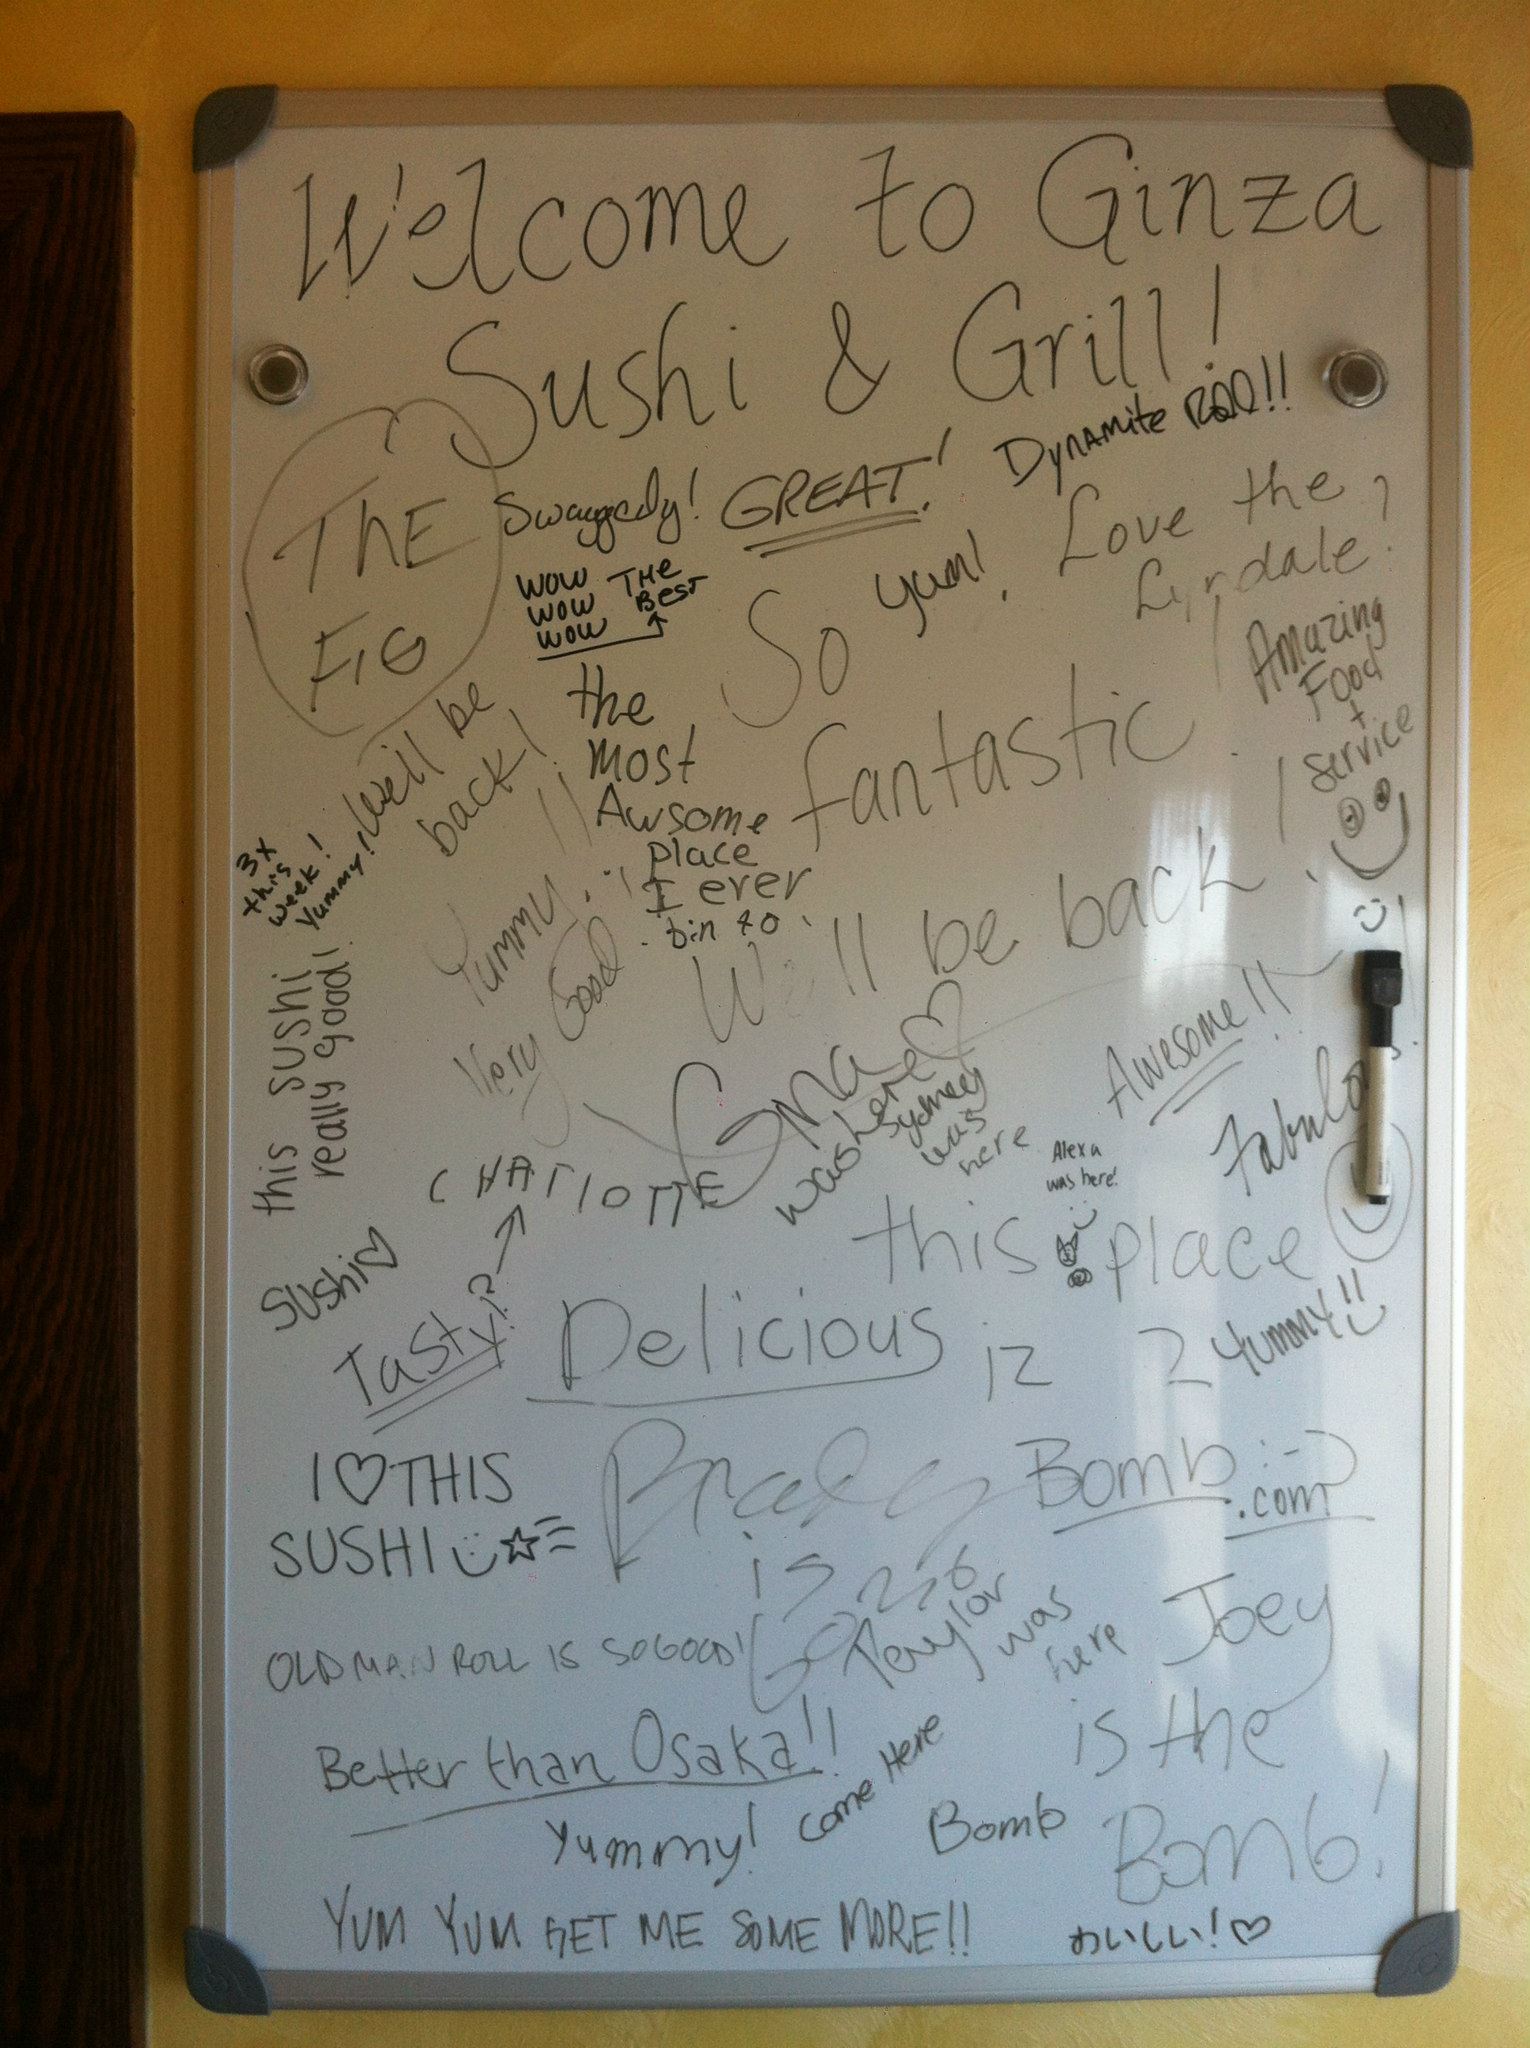 Welcome to Ginza
Sushi & Grill!
THE
FIG
Swaggedy!
GREAT!
Dynamite Roll!!
WOW THE
WOW BEST
WOW
So yum!
Love the
Lyndale!
Amazing
Food
+
Service
the
most
Awsome
place
I ever
bin to
fantastic
We'll be
back!
3x
this
week!
Yummy!
Yummy!!
Very Good
We'll be back!
this sushi
really good!
Gma
was here
Sydney
was
here
Awesome!!
Fabulous!
Alexa
was here!
CHATIOTTE
Sushi
Tasty!?
Delicious
this place
iz 2 Yummy!!
I THIS
SUSHI
Brady
is
Bomb
.com
OLD MAN ROLL IS SO GOOD!
Taylor
was
here
Joey
is the
Bomb!
Better than Osaka!!
Yummy!
Come Here
Bomb
YUM YUM GET ME SOME MORE!!
おいしい!